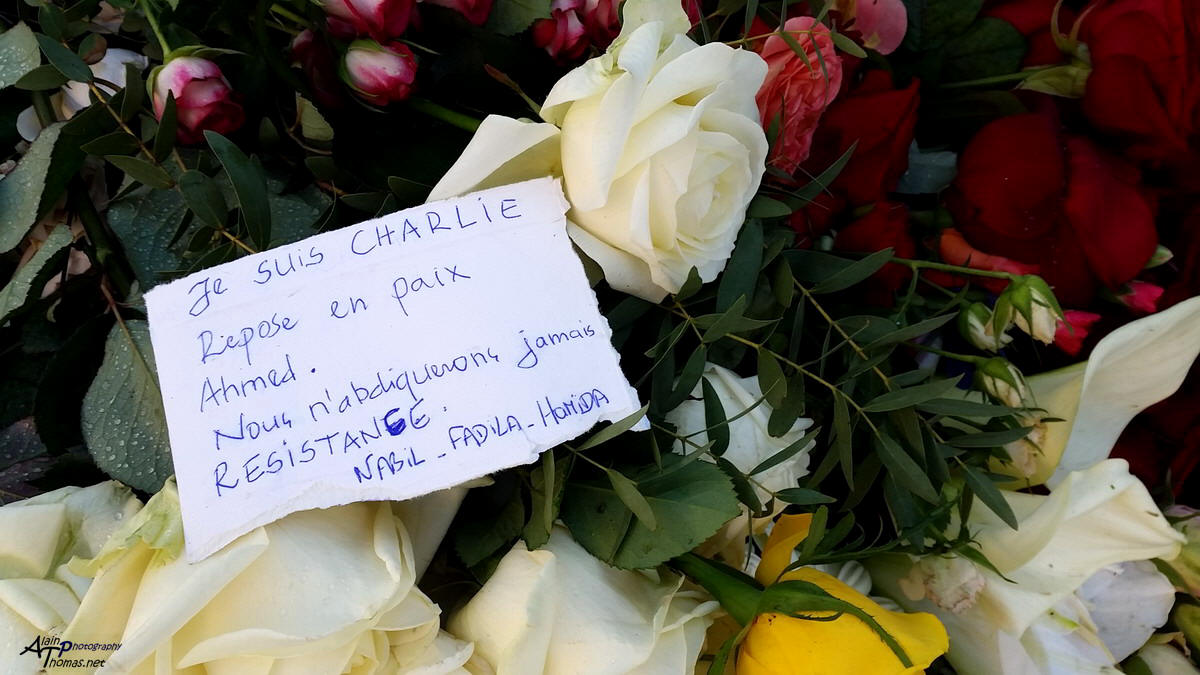 Je suis CHARLIE
Repose en paix
Ahmed.
Nous n'abdiquerons jamais
RESISTANCE.
NABIL_FADILA_HOMIDA
Alain Photography
Thomas.net